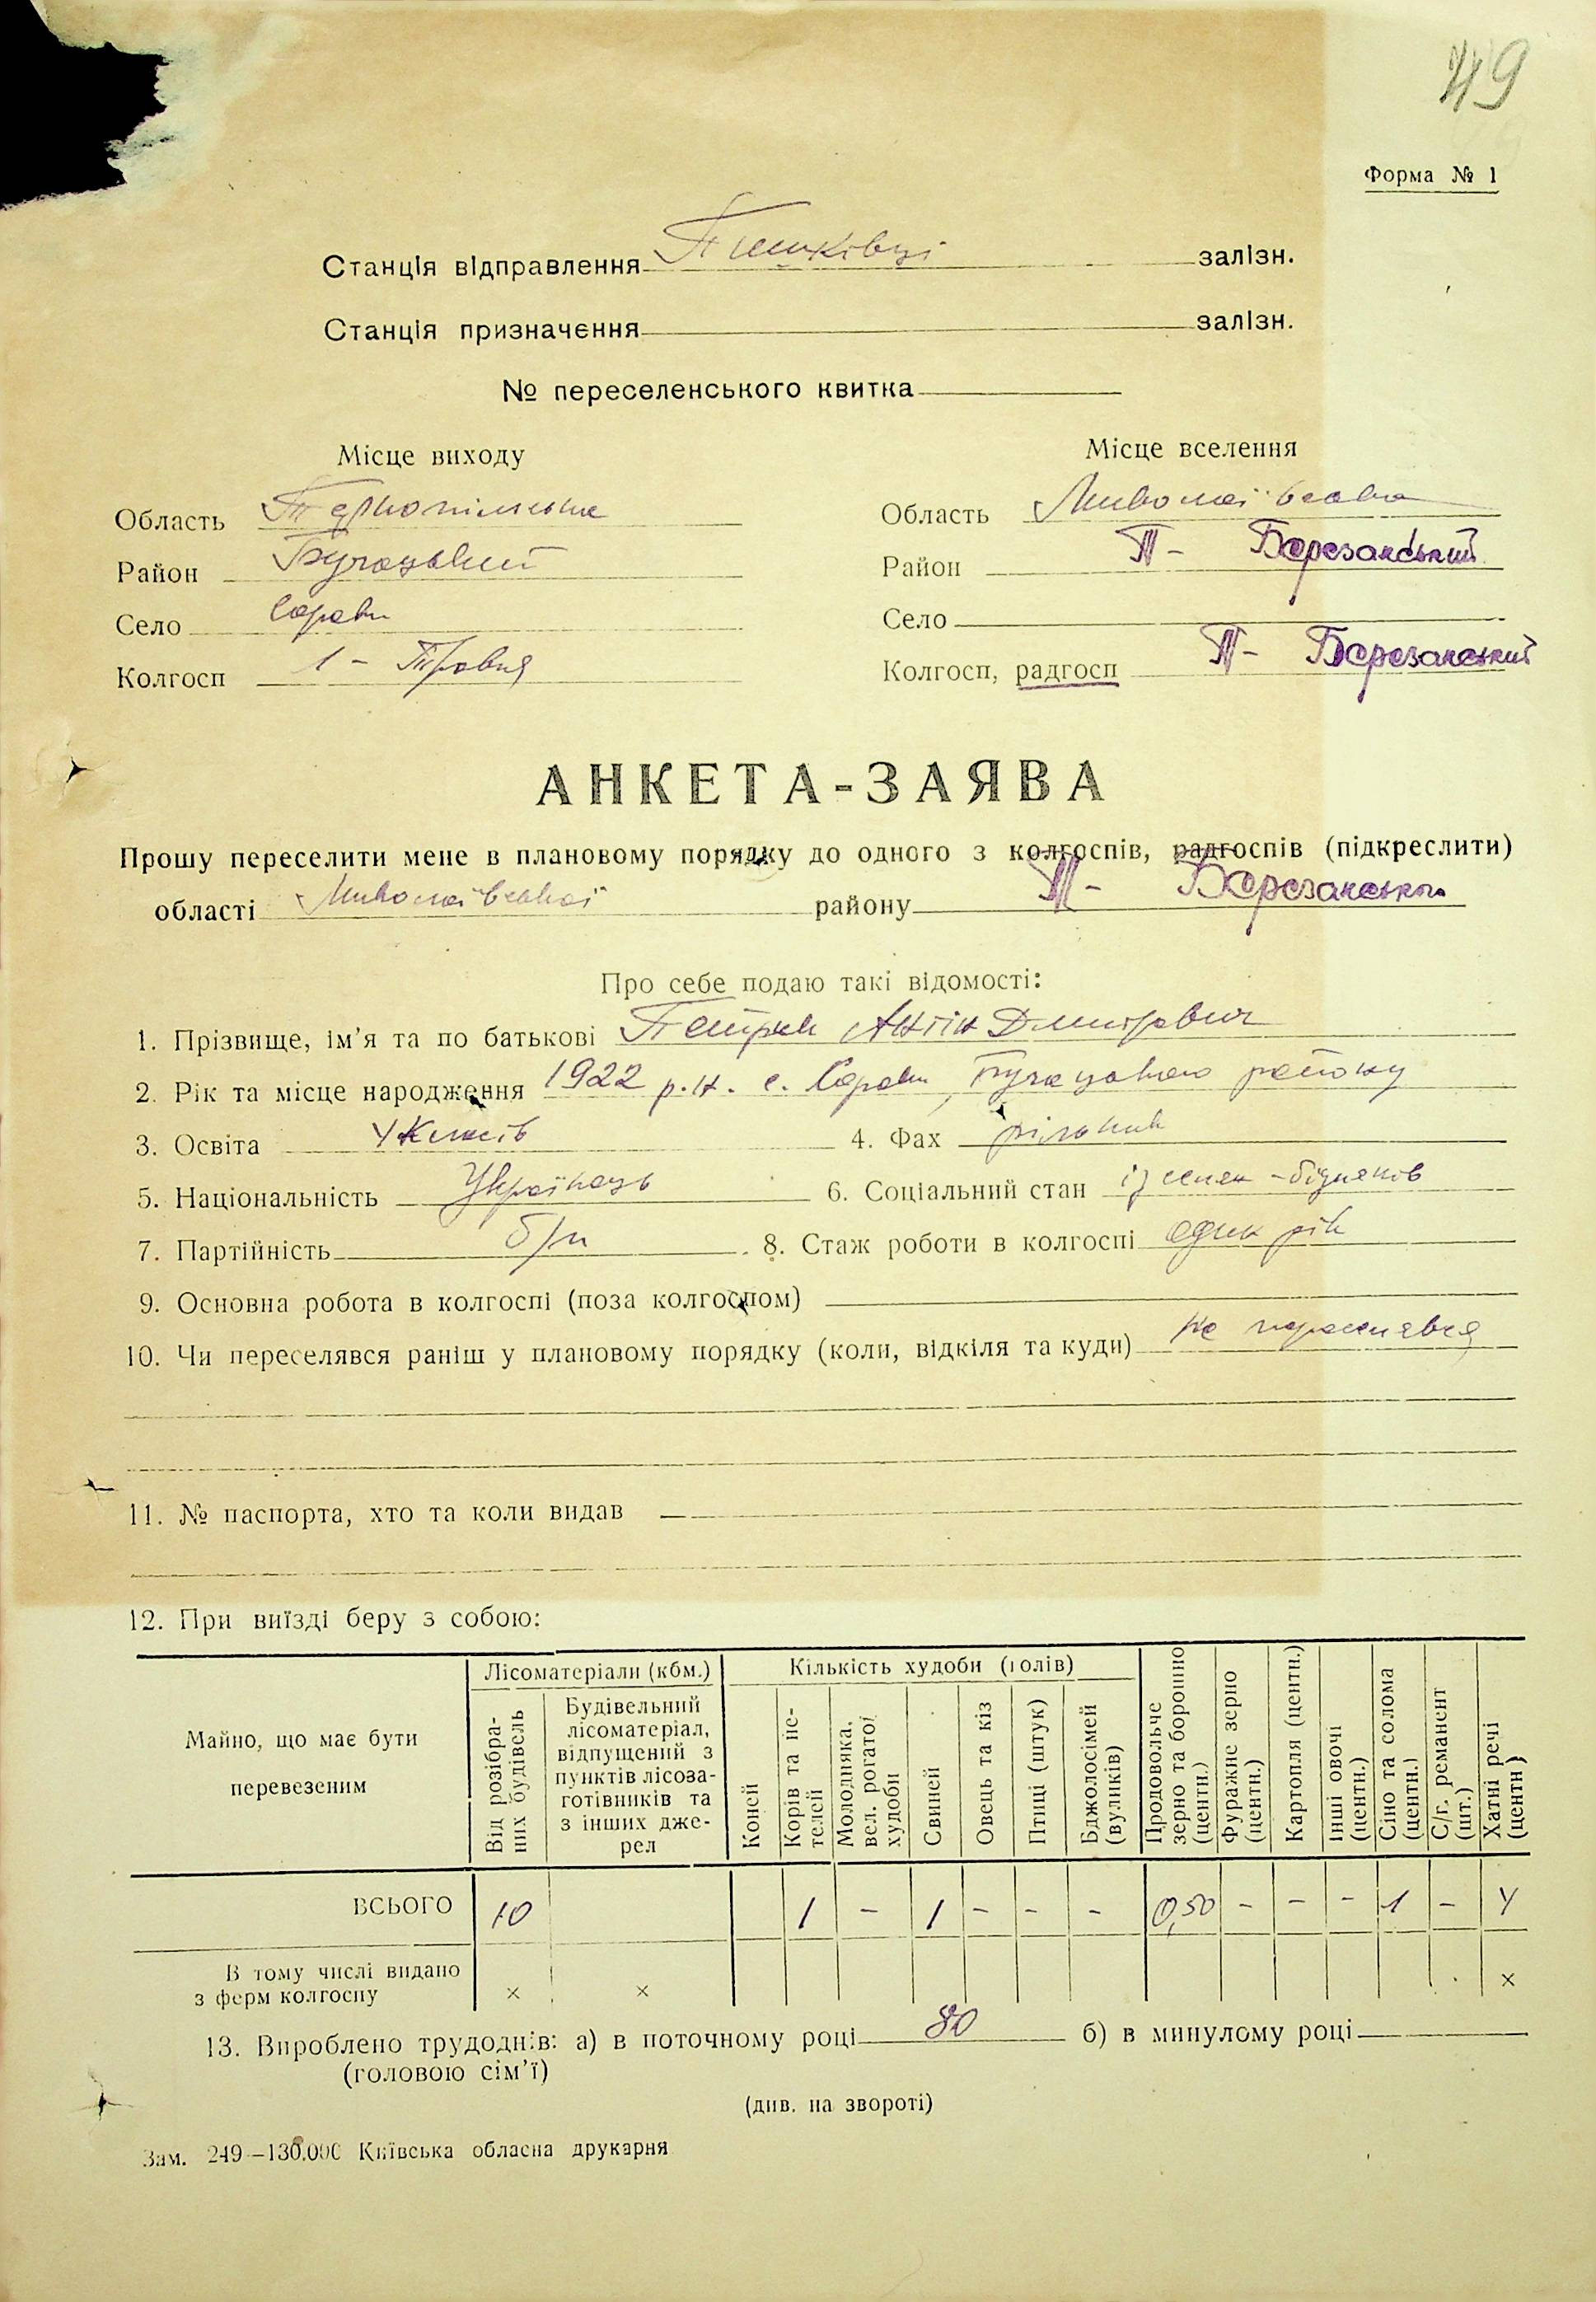 49
Форма № 1
Станція відправлення Пишківці залізн.
Станція призначення залізн.
№ переселенського квитка
Місце виходу
Місце вселення
Область Тернопільська
Область Миколаївська
Район Бучацький
Район Т- Березанський
Село Сороки
Село
Колгосп 1 - Травня
Колгосп, радгосп Т- Березанський
АНКЕТА-ЗАЯВА
Прошу переселити мене в плановому порядку до одного з колгоспів, радгоспів (підкреслити)
області Миколаївської району Т- Березанського
Про себе подаю такі відомості:
1. Прізвище, ім'я та по батькові Антін Дмитрович
2. Рік та місце народження 1922 р.н. с. Сороки, Бучацького району
3. Освіта 4 класів 4. Фах рільник
5. Національність Українець 6. Соціальний стан із селян -бідняків
7. Партійність б/п 8. Стаж роботи в колгоспі один рік
9. Основна робота в колгоспі (поза колгоспом)
10. Чи переселявся раніш у плановому порядку (коли, відкіля та куди) не переселявся
11. № паспорта, хто та коли видав
12. При виїзді беру з собою:
Майно, що має бути перевезеним
Лісоматеріали (кбм.)
Кількість худоби (голів)
Від розібраних будівель
Будівельний лісоматеріал, відпущений з пунктів лісозаготівників та з інших джерел
Коней
Корів та нетелей
Молодняка, вел. рогатої худоби
Свиней
Овець та кіз
Птиці (штук)
Бджолосімей (вуликів)
Продовольче зерно та борошно (центн.)
Фуражне зерно (центн.)
Картопля (центн.)
Інші овочі (центн.)
Сіно та солома (центн.)
С/г. реманент (шт.)
Хатні речі (центн)
ВСЬОГО 10 1 - 1 - - - 0,50 - - - 1 - 4
В тому числі видано з ферм колгоспу × × ×
13. Вироблено трудоднів: а) в поточному році 80 б) в минулому році
(головою сім'ї)
(див. на звороті)
Зам. 249—130.000 Київська обласна друкарня